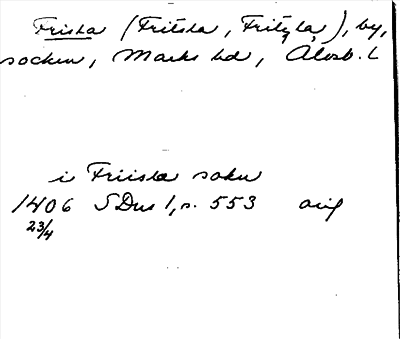 Frista (Fritsla, Fritzla), by,
socken, Marks hd, Älvsb. L
i Friisla sokn
1406 SDns 1, s. 553 orig
23/4